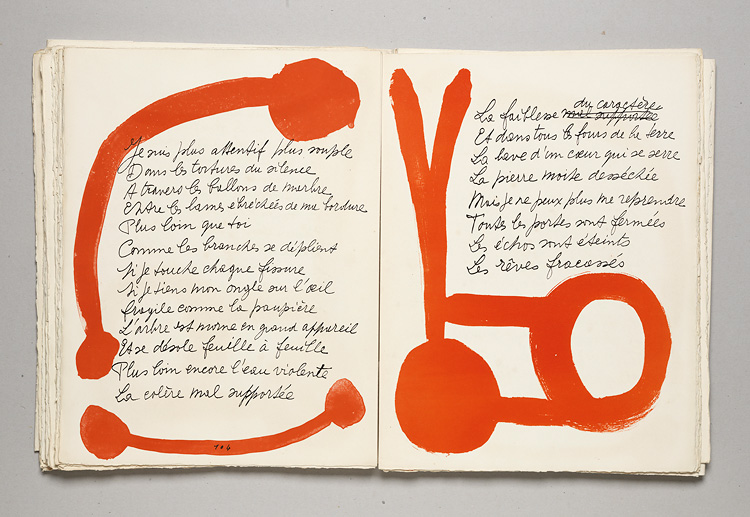 Je suis plus attentif plus souple
Dans les tortures du silence
A travers les ballons de marbre
Entre les lames ébréchées de ma bordure
Plus loin que toi
Comme les branches se déplient
Si je touche chaque fissure
Si je tiens mon ongle sur l'œil
fragile comme la paupière
L'arbre est morne en grand appareil
Et se désole feuille à feuille
Plus loin encore l'eau violente
La colère mal supportée
104
La faiblesse mal supportée du caractère
Et dans tous les fours de la terre
La lave d'un cœur qui se serre
La pierre moite desséchée
Mais je ne peux plus me reprendre
Toutes les portes sont fermées
Les échos sont éteints
Les rêves fracassés